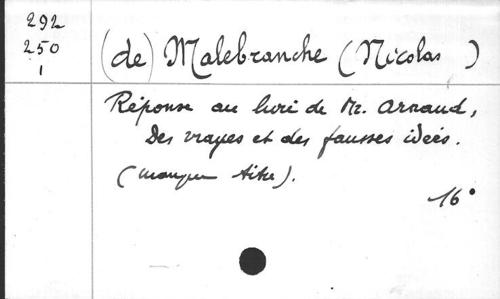 292
250
1
(de) Malebranche (Nicolas )
Réponse au livre de Mr. Arnaud,
Des vrayes et des fausses idées.
(manque titre).
16°